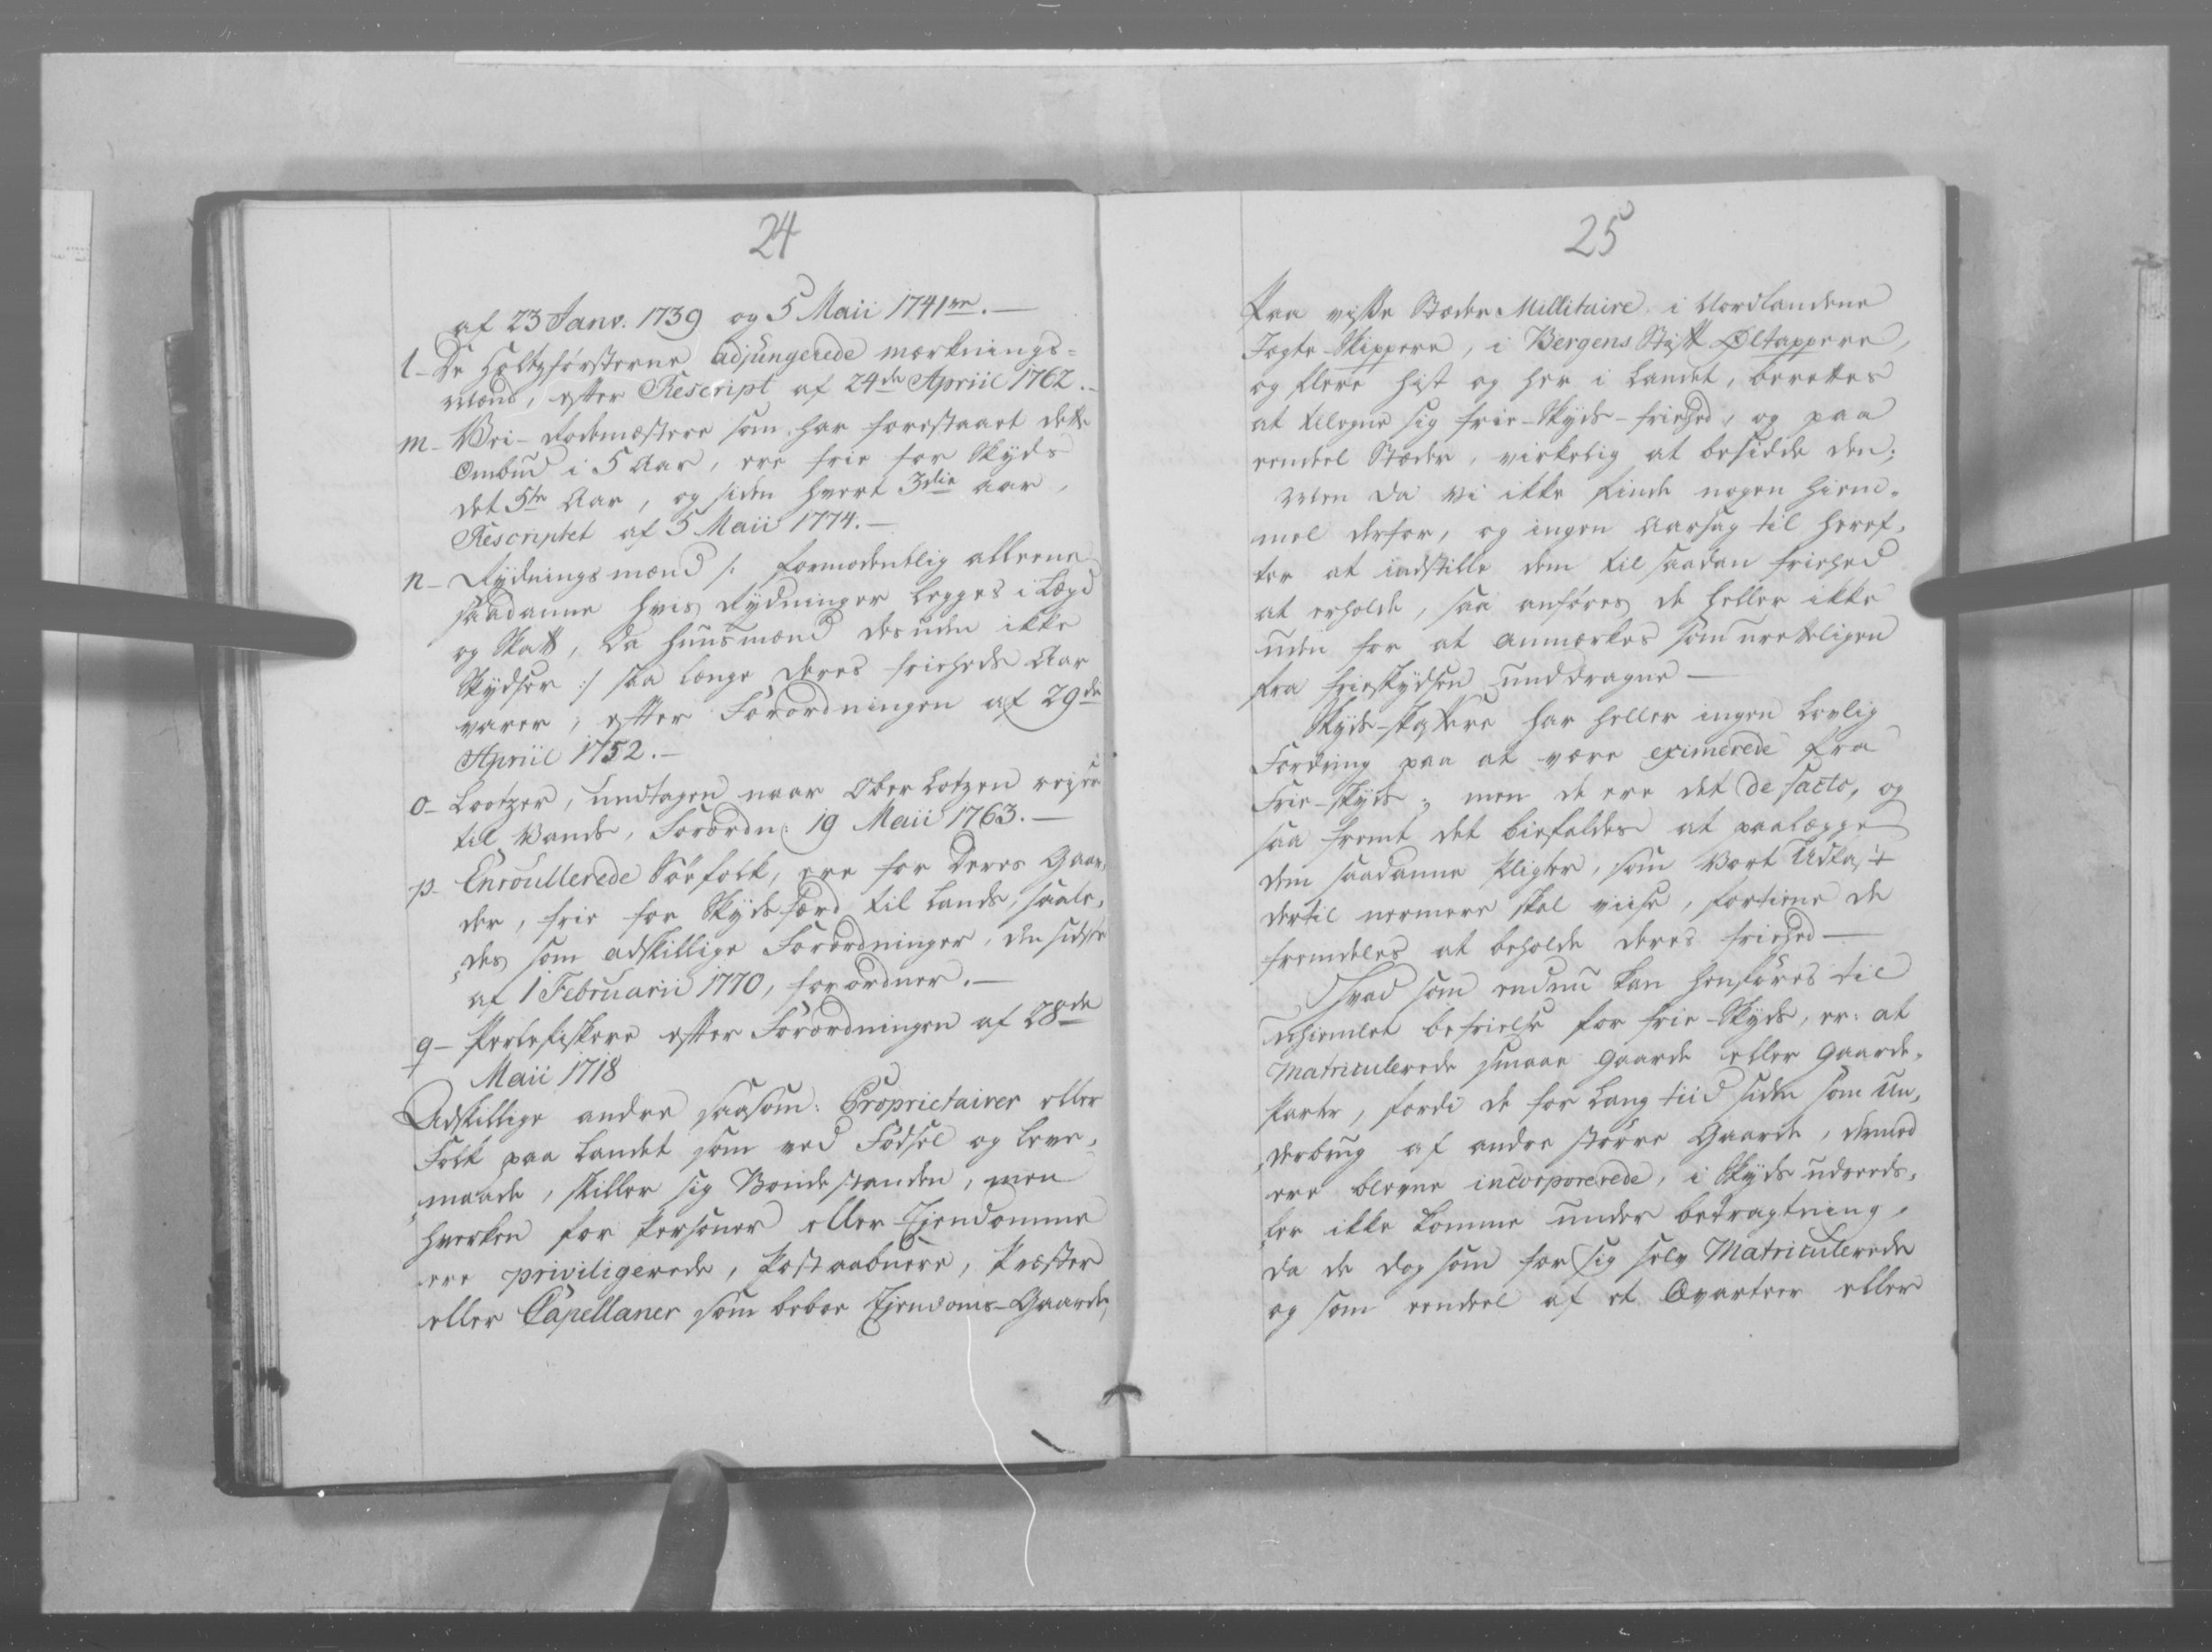 24
af 23 Janv: 1739 og 5 Maii 1741 ve.—
l- De Holtzførsterne adjungerede mærknings=
mænd, efter Rescript af 24de Apriil 1762.-
m- Vei-Rodemestere som har forestaaet dette
Ombud i 5 Aar, ere frie for Skyds
det 5te Aar, og siden hvert 3die Aar,
Rescriptet af 5 Maii 1774.—
n- Rydningsmænd /: formodentlig alleene
saadanne hvis Rydninger legges i Lægd
og Skatt, da Huusmænd desuden ikke
Skydser :/ saa længe deres friheds Aar
varer, efter Forordningen af 29de
Apriil 1752.—
o- Lootzer, undtagen naar Ober Lotzen rejser
til Vands, Forordn: 19 Maii 1763.—
p- Enroullerede Söefolk, ere for deres Gaar,
der, frie for Skydsfærd til Lands, saale,
"des som adskillige Forordninger, den sidste
af 1 Februarii 1770, forordner.—
q- Perlefiskere efter Forordningen af 28de
Maii 1718
Adskillige andre saasom: Proprietairer eller
Folk paa Landet som ved Födsel og Leve,
"maade, skiller sig Bondestanden, men
hverken for Personer eller Ejendomme
ere priviligerede, Postaabnere, Præster
eller Capellaner som beboe Ejendoms-Gaarde,
25
Paa visse Stæder Millitaire i Nordlandene
Jægte-Skippere, i Bergens Stift Øltappere,
og flere hist og her i Landet, berettes
at tilegne sig frie-Skyds-friehed, og paa
eendeel Stæder, virkelig at besidde den;
Men da vi ikke finde nogen Hiem-
mel derfor, og ingen Aarsag til heref,
ter at indstille dem til saadan friehed
at erholde, saa anføres de heller ikke
uden for at anmærkes som uretteligen
fra frieskydsen unddragne —
Skyds-skaffere har heller ingen Lovlig
Fordring paa at være eximerede fra
Frie-skyds; men de ere det de facto, og
saa fremt det biefaldes at paalægge
dem saadanne Pligter, som Vort Udka,+
dertil nermere skal viise, fortiene de
fremdeles at beholde deres friehed —
Hvad som endnu kan henföres til
uhiemlet befrielse for frie-Skyds, er: at
Matriculerede smaae Gaarde eller Gaarde,
Parter, fordi de for lang tiid siden som Un,
"derbrug af andre större Gaarde, dermed
ere blevne incorporerede, i Skyds udreeds,
"ler ikke komme under betragtning,
da de dog som for sig selv Matriculerede
og som eendeel af et Qvarteer eller